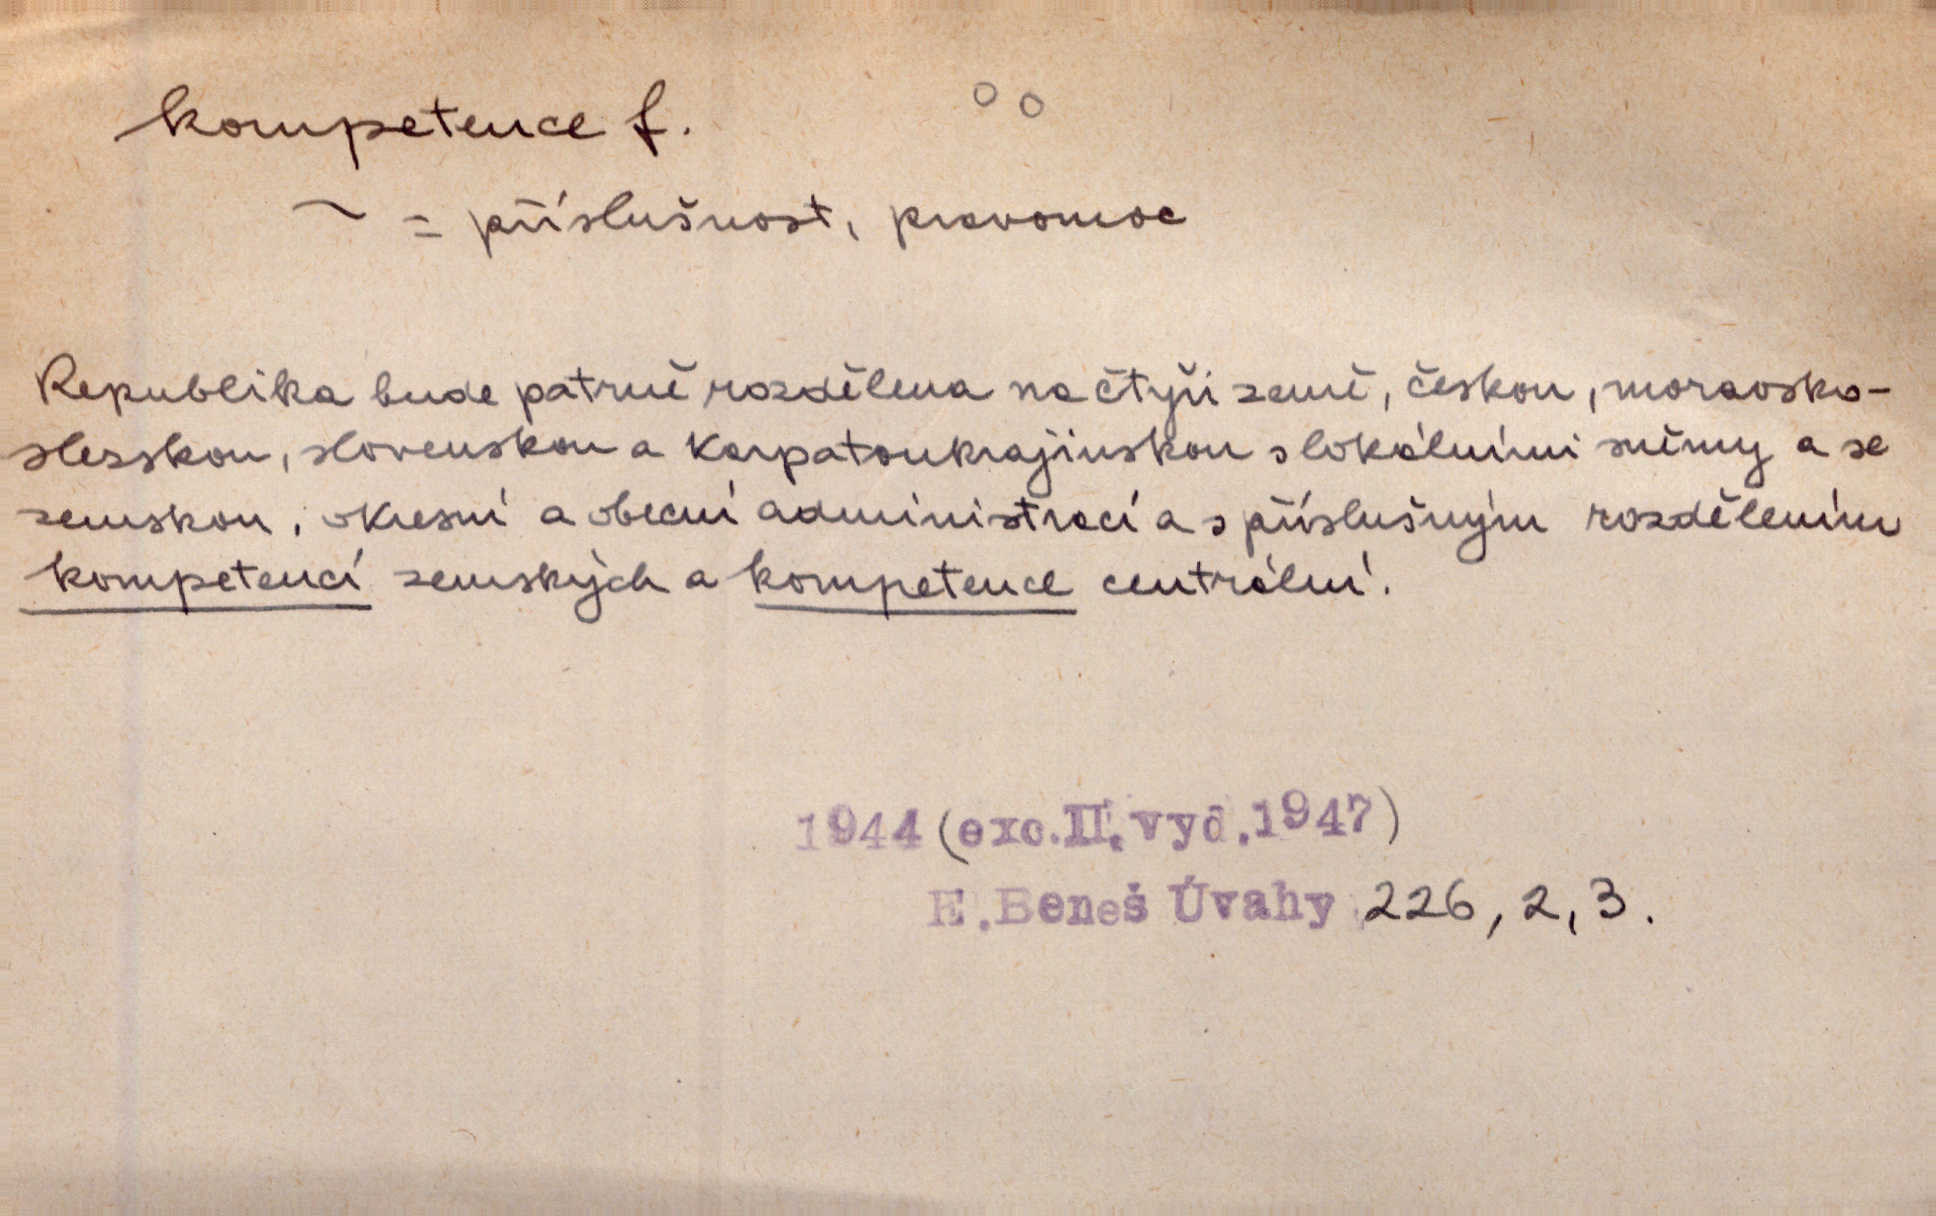 kompetence f.
~ = příslušnost, pravomoc
Republika bude patrně rozdělena na čtyři země, českou, moravsko-
slezskou, slovenskou a Karpatoukrajinskou s lokálními sněmy a se
zemskou, okresní a obecní administrací a s příslušným rozdělením
kompetencí zemských a kompetence centrální.
1944 (exc. II. vyd. 1947)
E. Beneš Úvahy 226, 2, 3.